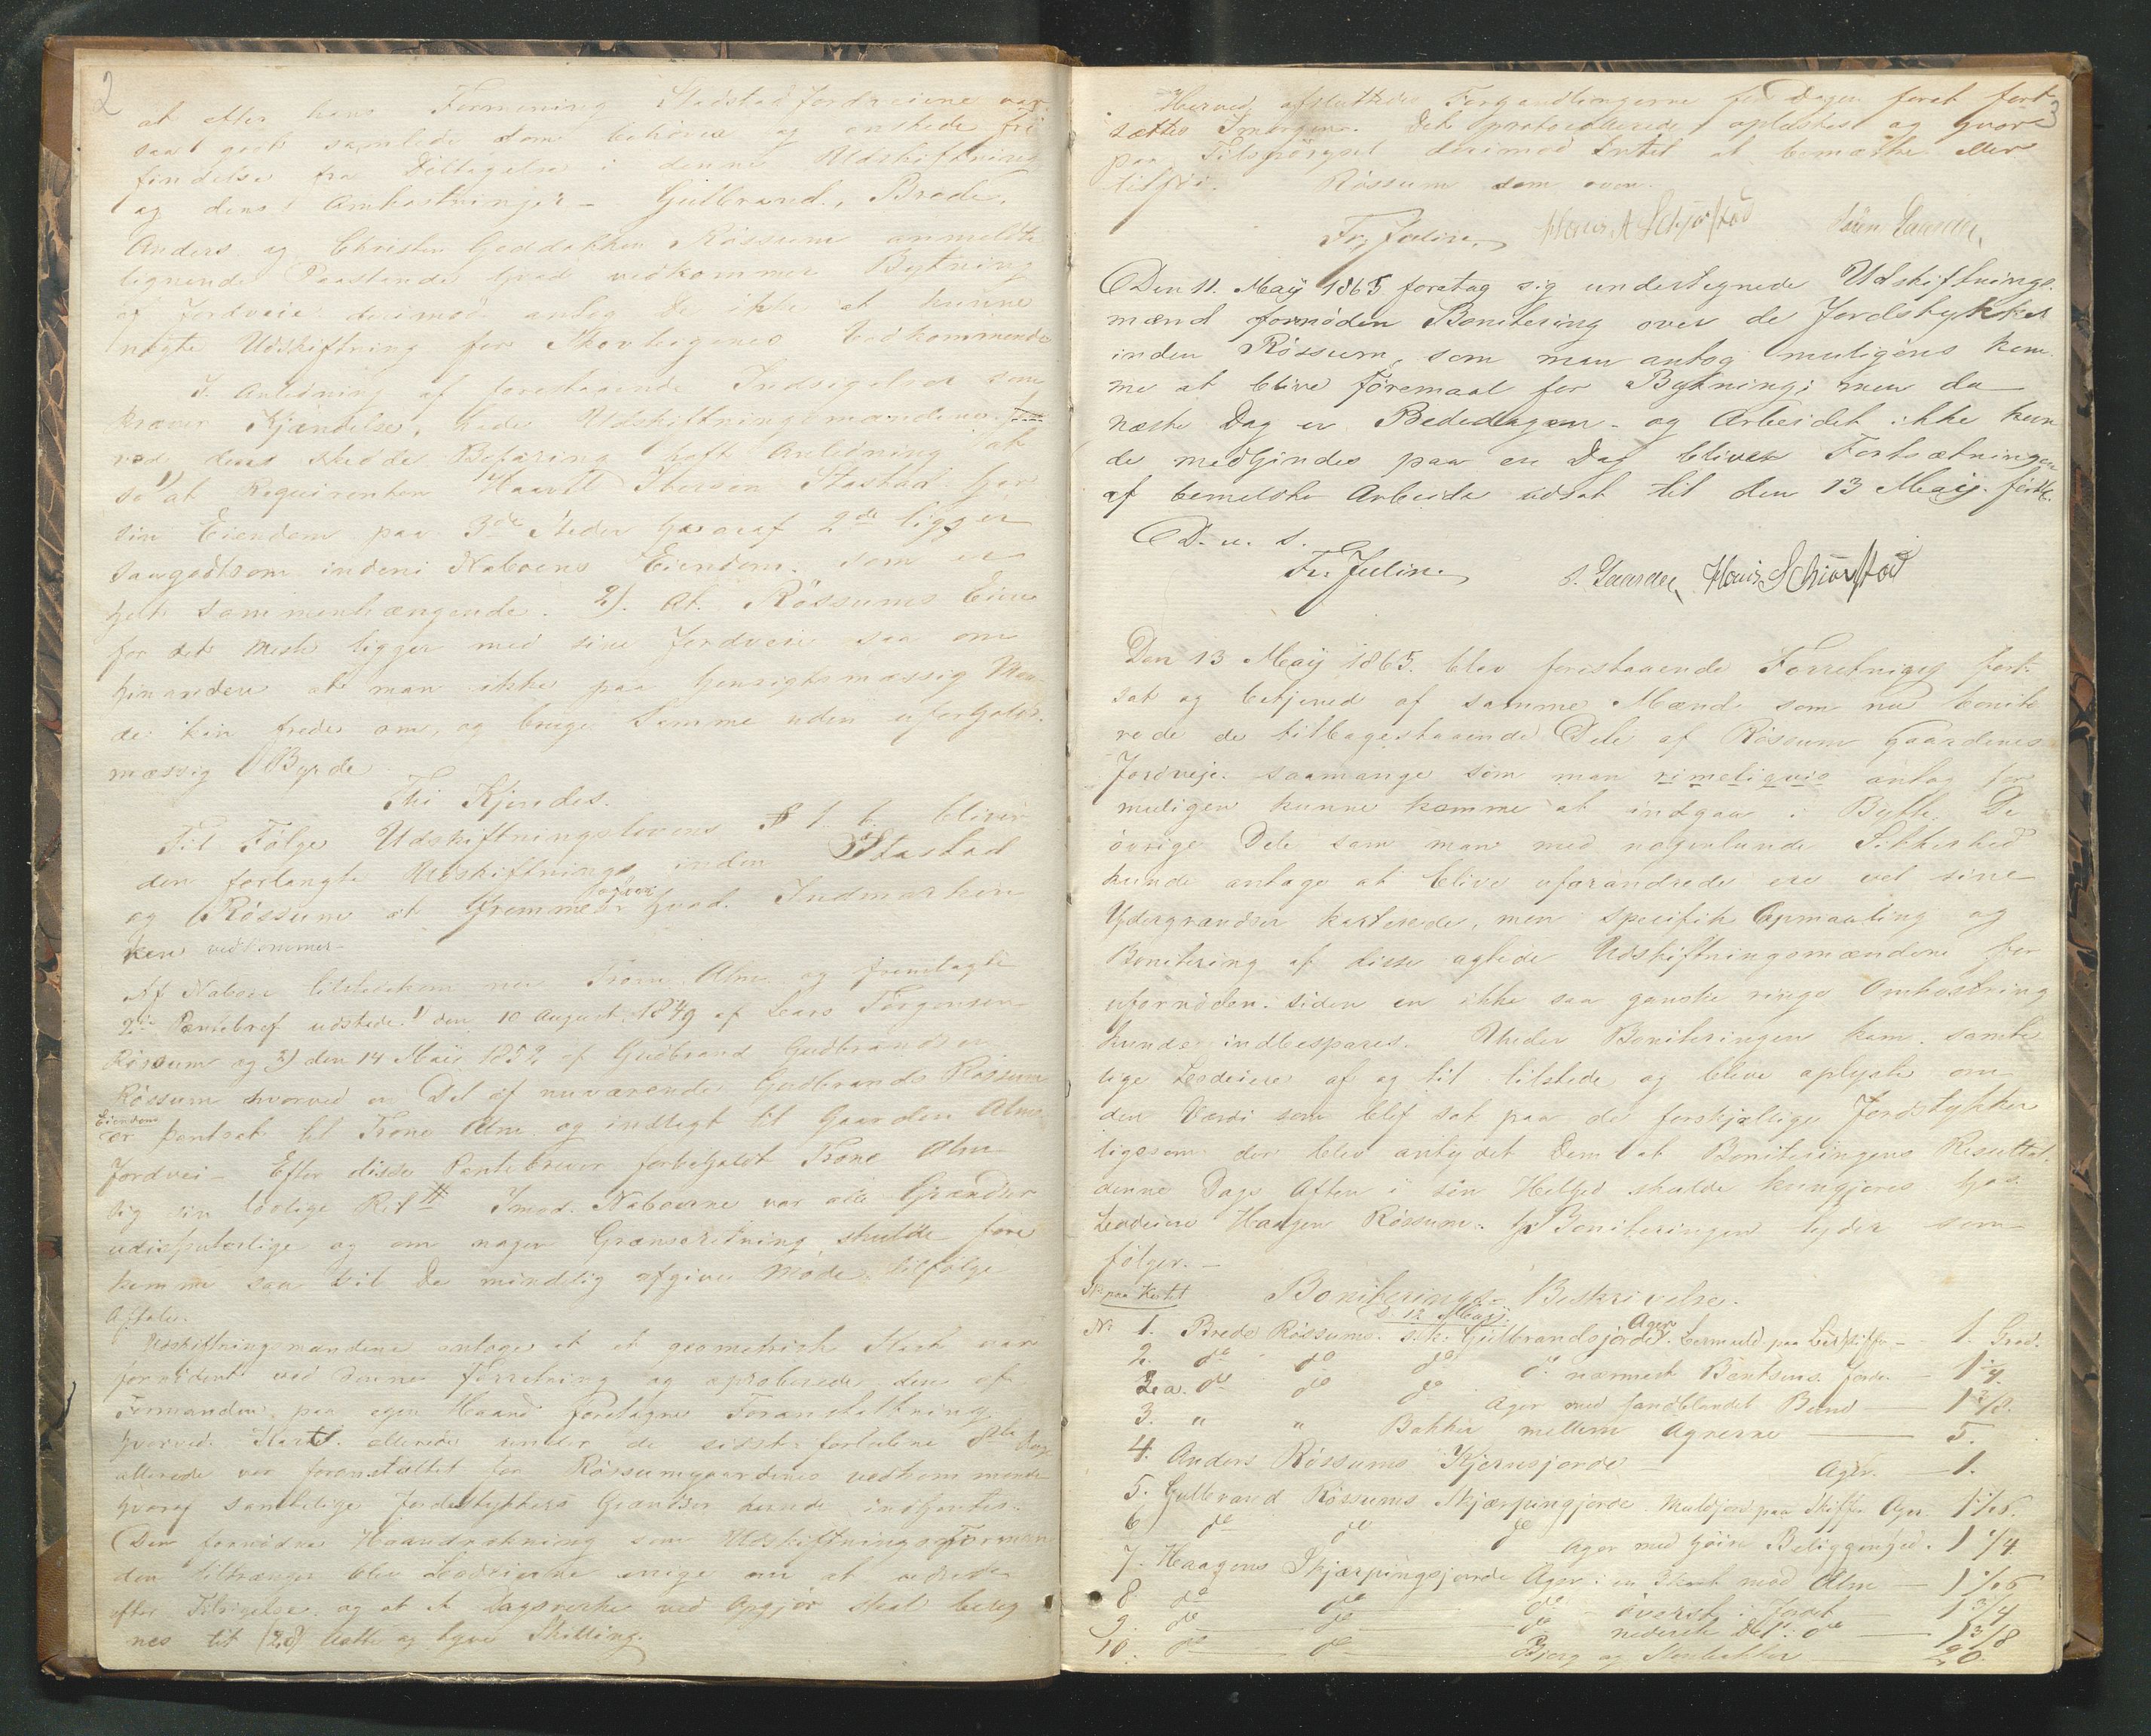 2
at efter hans Formening Stadstad Jordveiene var
saa godt samlede som behöves og önskede fri
findelse fra Deltagelse i denne Udskiftning
og dens Omkostninger - Gulbrand, Brede,
Anders og Christen Goddakken Røssum anmeldte
lignende Paastande hvad vedkommer Bytning
af Jordveie derimod antog de ikke at kunne
negte Udskiftning for Skovteigenes Vedkommende
I Anledning af forestaaende Indsigelser som
kræver Kjændelse, havde Udskiftningsmændene
ved deres skedde Befaring havt Anledning at
se 1) at Reqvirenten Haavel Iversen Stastad har
sin Eiendom paa 3de Steder hvoraf 2de ligger
saagodtsom indeni Naboens Eiendom, som er
helt sammenhængende. 2). At Røssums Eiere
for det meste ligger med sine Jordveie saa om
hinanden at man ikke paa hensigtsmæssig Maa-
de kan frede om, og bruge Samme uden uforholds-
mæssig Byrde
Thi Kjendes.
Til Følge Udskiftningslovens § 1. b. bliver
den forlangte Udskiftning inden Stastad
og Røssum at fremme hvad Indmarken
ken vedkommer-
Af Naboer tilstedekom nu Trone Alm og fremlagde
2de Pantebref udstædt 1) den 10 August 1849 af Lars Torgersen
Røssum og 2) den 14 Maij 1852 af Gudbrand Gudbrandsen
Røssum hvorved en Del af nuværende Gudbrands Røssum
Eiendom
er pantsat til Trone Alm og indlagt til Gaarden Alms
Jordvei - Efter disse Pantebreve forbeholdt Trone Alm
sig sin lovlige Ret. Imod Naboerne var alle Grændser
udisputerlige og om nogen Grænseretning skulde fore
komme saa vil De mindelig afgive Møde tilfølge
Aftale.
Udskiftningsmændene antoges at et geometrisk Kart var
fornødent ved denne Forretning og aproberede den af
Formanden paa egen Haand foretagne Foranstaltning
hvorved Kart allerede under de sidst forløbne Dage
allerede var foranstaltet for Røssumgaardenes vedkommende
hvoraf samtelige Jordstykkers Grændser kunde indhentes.
Den fornødne Haandrækning som Udskiftningsforman
den tiltrænger blev Lodeierne enige om at udrede
efter Tilsigelse og at et Dagsverke ved Opgjør skal bereg
nes til (28) otte og tyve Skilling.
3
Herved afsluttedes Forhandlingerne for Dagen foret fort
sættes Imorgen. Det protocollerede oplæstes og hvor
paa Tilspörgsel derimod Intet at bemærke eller
tilföi. Røssum som oven.
Fr. Juline Hans A Schjørstad Sören Gaarder
Den 11. Maij 1865 foretog sig undertegnede Udskiftnings-
mænd fornøden Bonitering over de Jordstykker
inden Røssum, som man antog muligens kom-
me at blive Föremaal for Bytning; men da
næste Dag er Bededagen - og Arbeidet ikke kun
de medhindes paa en Dag bliver Fortsætningen
af bemeldte Arbeide udsat til den 13 Maij førstk.
D. u. s.
Fr. Juline S. Gaarder Hans Schiørstad
Den 13 Maij 1865. blev forestaaende Forretning fort-
sat og betjened af samme Mænd som nu bonite
rede de tilbagestaaende Dele af Røssum Gaardenes
Jordveje. saamange som man rimeligvis antog for
muligen kunne komme at indgaa i Bytte. De
øvrige Dele som man med nogenlunde Sikkerhed
kunde antage at blive uforandrede ere vel sine
Ydergrændser karterede, men specifik Opmaaling og
Bonitering af disse agtede Udskiftningsmændene for
ufornøden. siden en ikke saa ganske ringe Omkostning
kunde indbespares. Under Boniteringen kom samte
lige Lodeiere af og til tilstede og bleve oplyste om
den Værdi som blef sat paa de forskjællige Jordstykker
ligesom der blev antydet Dem at Boniteringens Resultat
denne Dags Aften i sin Helhed skulde kungjøres hos
Lodeiere Haagen Røssum. Boniteringen lyder som
følger. -
No paa Kartet Boniterings-Beskrivelse.
d. 12 Maij.
No 1. Brede Røssums s.k. Gulbrandsjordet. Ager bermuld paa - 1. Grad.
2. do do do do nærmest Bentsens Jorde - 1 1/4.
2. a. do do do Ager med sandblandet Bund - 1 3/8.
3. " " Bakker mellem Agrene - 5.
4. Anders Røssums Kjernsjorde - Ager. - 1.
5. Gulbrand Røssums Skjærpingjorde Muldjord paa Skiffer Ager 1 1/16.
6 do do do Ager med høire Beliggenhed. 1 1/4
7. Haagens Skjærpingsjorde Ager i en Skraat mod Alm - 1 1/16
8. do do do - øverst i Jord 1 3/4
9. do do do nederste Del: do 1 3/8
10. do do Bjerg og Stenbakker 20.